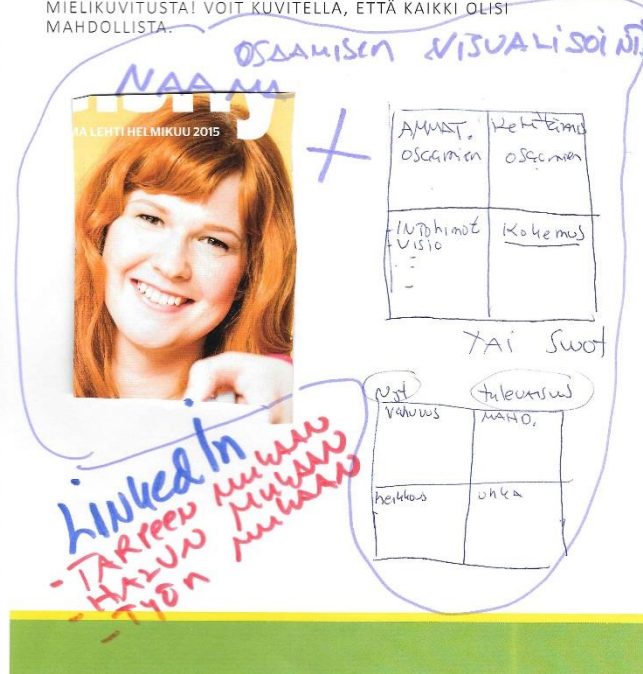 MIELIKUVITUSTA! VOIT KUVITELLA, ETTÄ KAIKKI OLISI
MAHDOLLISTA.
OSAAMISEN VISUALISOINTI
NAAMA
+
MA LEHTI HELMIKUU 2015
AMMAT.
osaamien
osaamien
- INTOhimot
- visio
-
-
Kokemus
TAI Swot
Nyt
tulevaisuus
vahvuus
MAHD.
heikkous
uhka
LinkedIn
- TARPEEN MUKAAN
- HALUN MUKAAN
- TYÖN MUKAAN